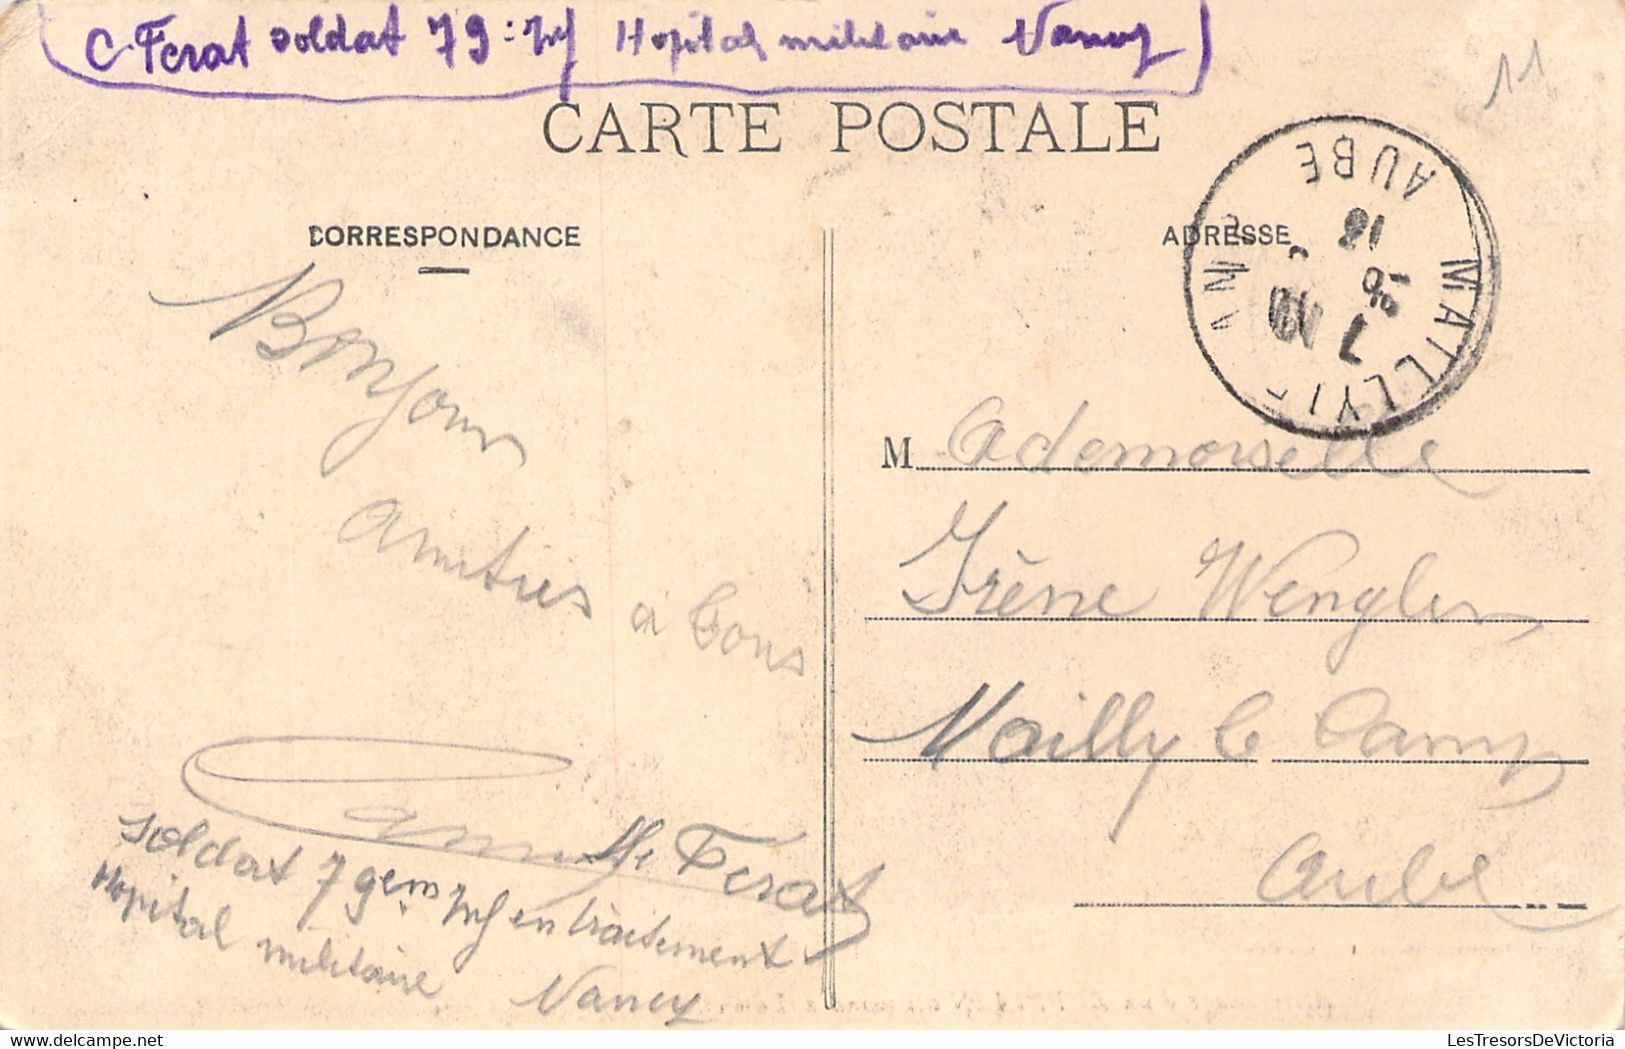 C. Ferat soldat 79: Inf Hopital militaire Nancy
11
CARTE POSTALE
CORRESPONDANCE
ADRESSE
MAILLY
AUBE
7
18
Bonjour
Amitiés à tous
Camille Ferat
soldat 79em Inf en traitement
Hopital militaire Nancy
M ademoiselle
Irène Wengler
Mailly le Camp
Aube
LesTresorsDeVictoria